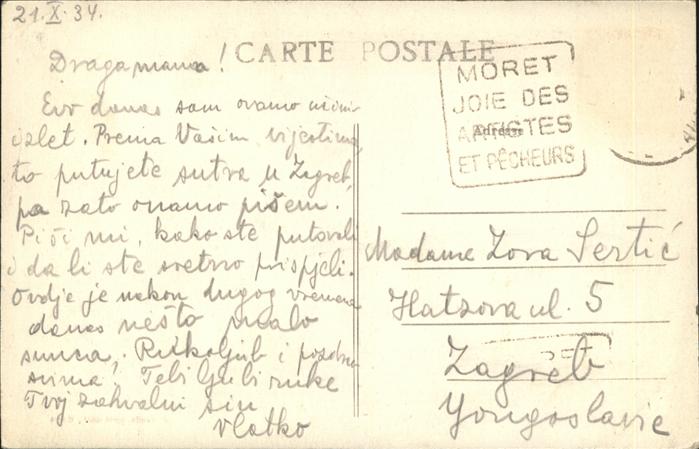 21. X. 34.
CARTE POSTALE
Draga mama!
Evo danas sam ovamo učinio
izlet. Prema Vašim vijestima,
to putujete sutra u Zagreb,
pa zato onamo pišem.
Piši mi, kako ste putovali
i da li ste sretno prispjeli.
Ovdje je nakon dugog vremena
danas nešto malo
sunca. Rukoljub i pozdrav
svima, Tebi ljubi ruke
Tvoj zahvalni sin
Vlatko
MORET
JOIE DES
ARTISTES
ET PÊCHEURS
Adresse
Madame Zora Sertić
Hatzova ul. 5
Zagreb
Yougoslavie